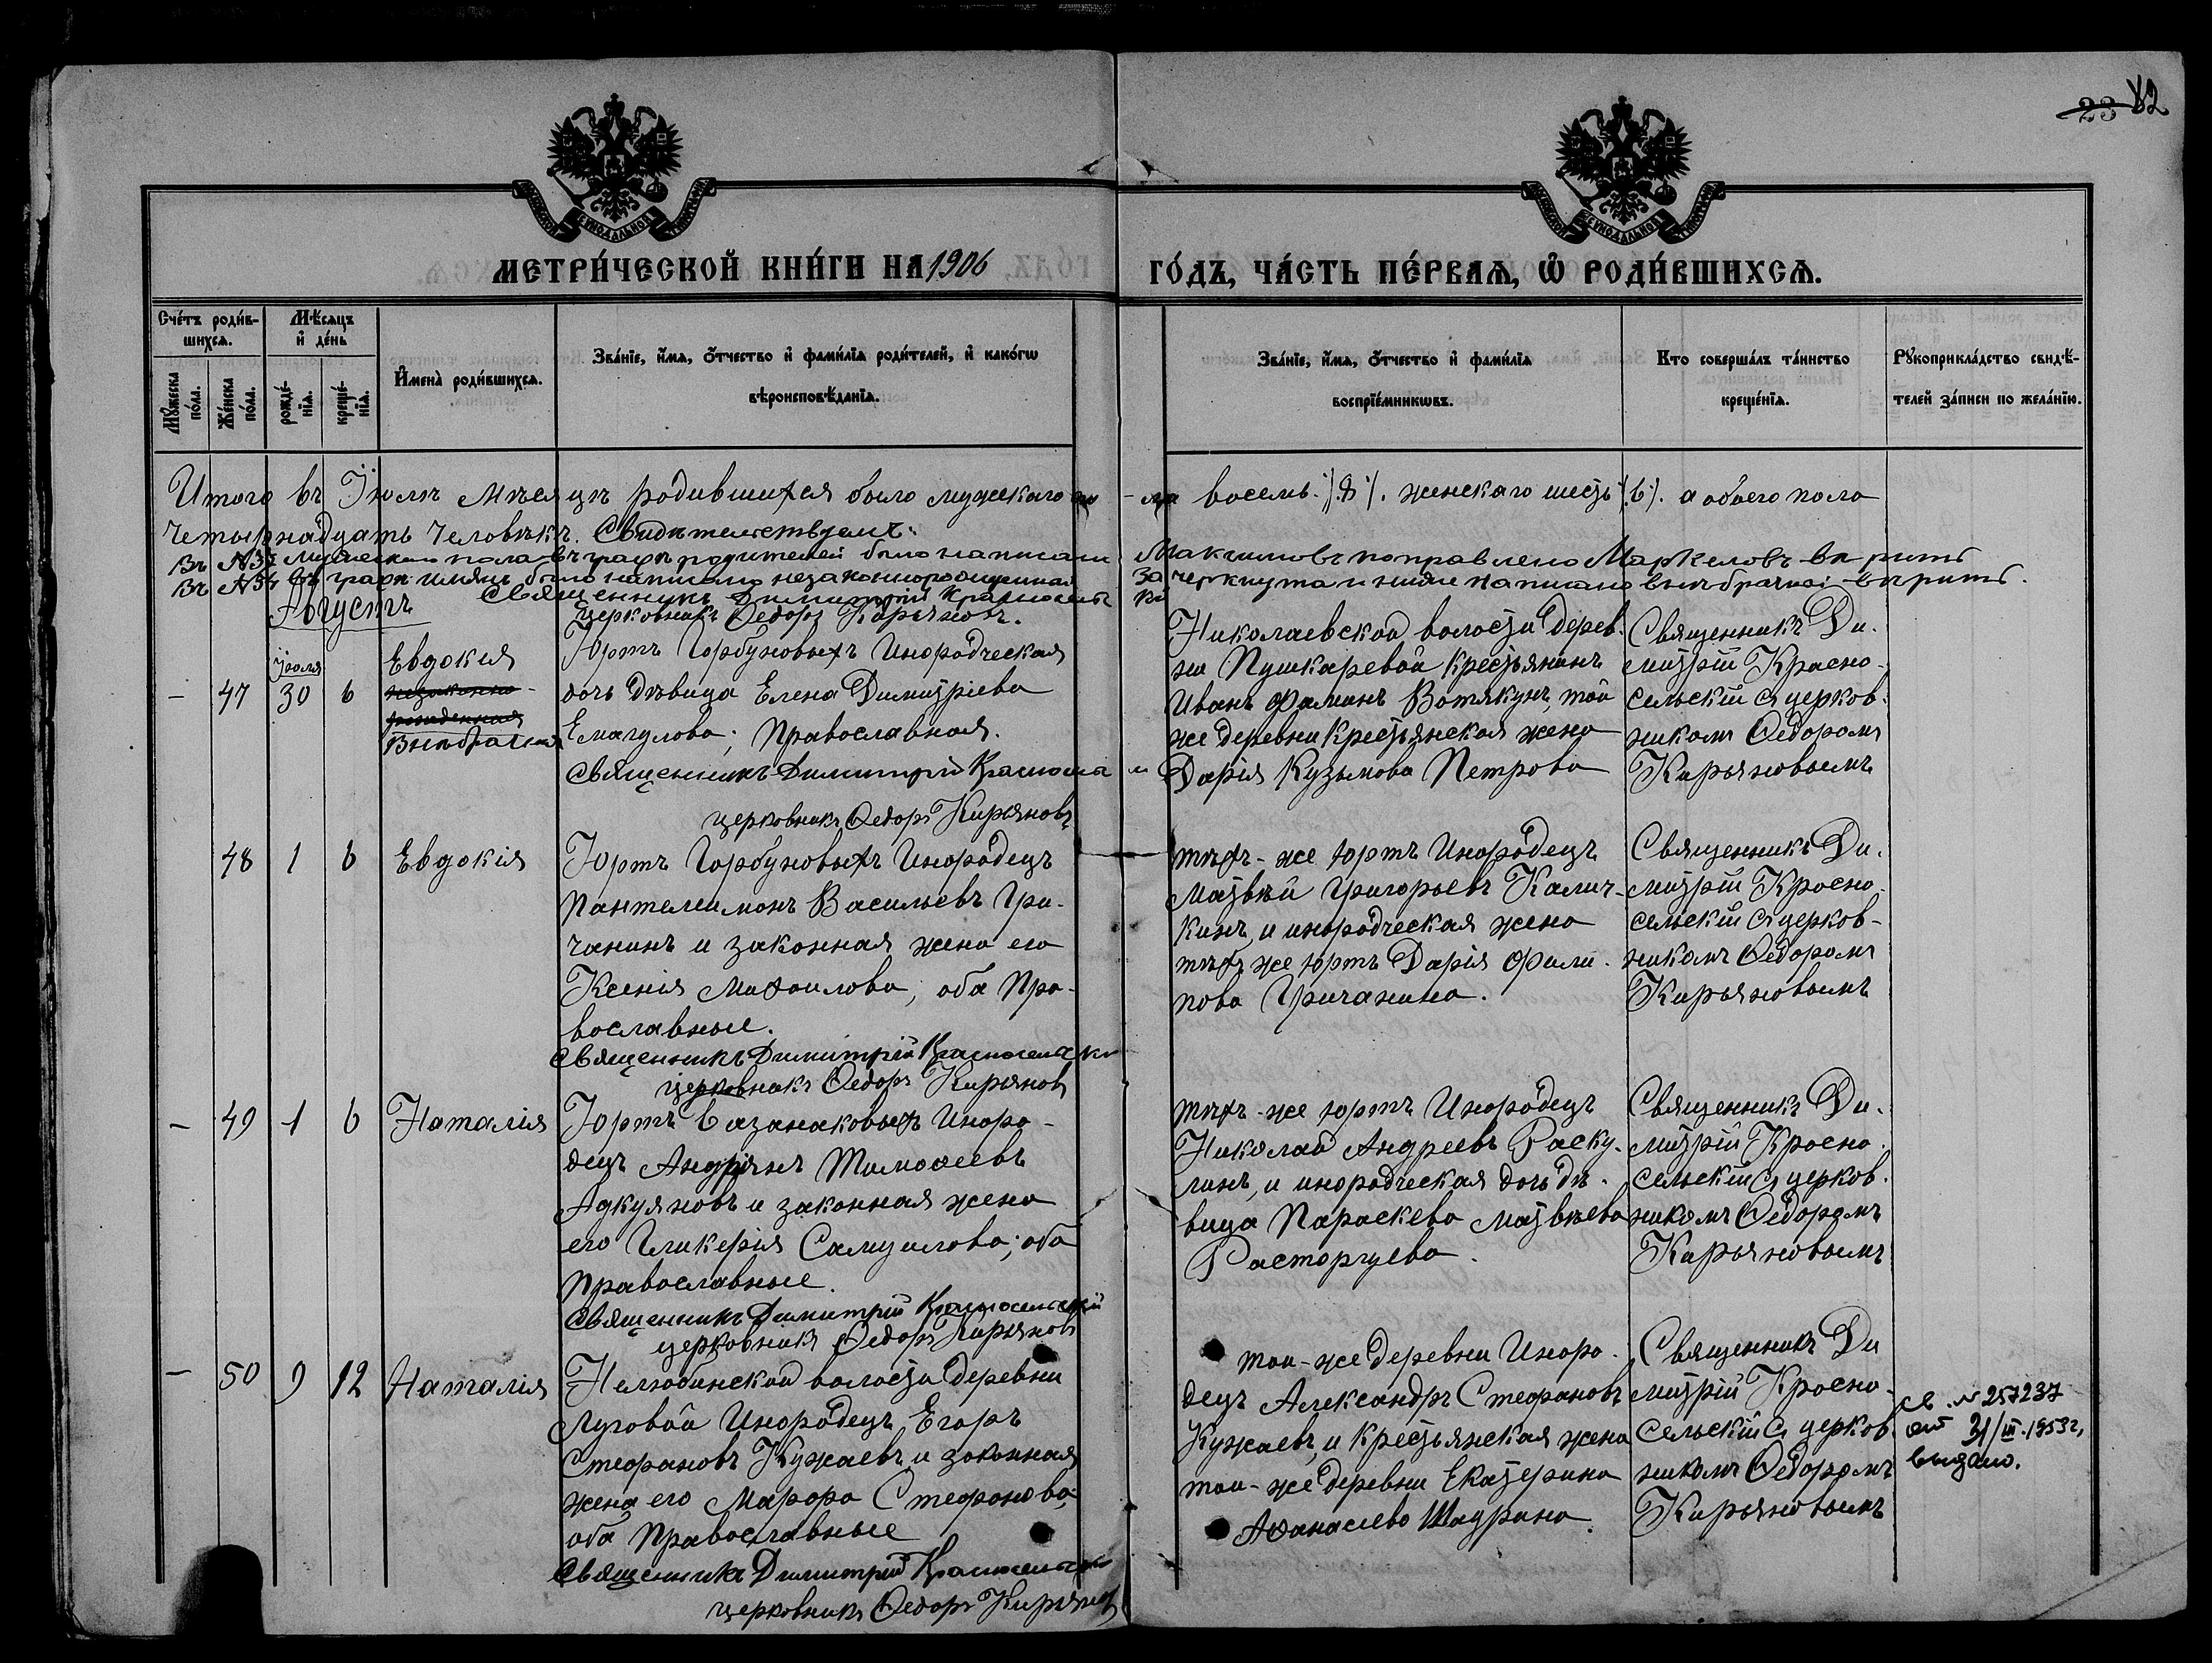 23 82
МЕТРИ́ЧЕСКОЙ КНИ́ГИ НА 1906 ГО́ДЪ, ЧА́СТЬ ПЕ́РВАЯ, Ѡ РОДИ́ВШИХСЯ.
Сче́тъ роди́вшихся.
Мѣ́сяцъ и де́нь
Мꙋ́жеска по́ла.
Же́нска по́ла.
рожде́нїя.
креще́нїя.
И҆мена̀ роди́вшихся.
Зва́нїе, и҆́мя, ѻ҆́тчество и҆ фами́лїя роди́телей, и҆ како́гѡ
вѣроисповѣ́данїя.
Зва́нїе, и҆́мя, ѻ҆́тчество и҆ фами́лїя
воспрїе́мникѡвъ.
Кто̀ соверша́лъ та́инство
креще́нїя.
Рꙋкоприкла́дство свидѣ́-
телей за́писи по жела́нїю.
Итого въ Іюлѣ мѣсяцѣ родившихся было мужскаго по-ла восемь ./.8./. женскаго шесть ./.6./. а обоего пола
четырнадцать человѣкъ. Свидѣтельствуемъ:
Въ № мужескаго пола въ графѣ родителей было написано Максимовъ поправлено Маркеловъ вѣрить
Въ № въ графѣ имянъ было написано незаконнорожденная зачеркнута и ниже написано внѣбрачная вѣрить.
Священникъ Димитрій Красносельскій
церковникъ Ѳедоръ Кирьяновъ.
Августъ
Іюля
- 47 30 6
Евдокія
незаконно-
рожденная
Внѣбрачная
Юртъ Горбуновыхъ Инородческая
дочь дѣвица Елена Димитріева
Емагулова; Православная.
Священникъ Димитрій Красносельскій
церковникъ Ѳедоръ Кирьяновъ
Николаевской волости дерев-
ни Пушкаревой Крестьянинъ
Иванъ Вотякунъ, той
же деревни Крестьянская жена
Дарія Кузьмова Петрова
Священникъ Ди-
митрій Красно-
сельскій съ церков-
никомъ Ѳедоромъ
Кирьяновымъ
48 1 6 Евдокія
Юртъ Горбуновыхъ Инородецъ
Пантелеимонъ Васильевъ Гри-
чанинъ и законная жена его
Ксенія Михаилова, оба Пра-
вославные.
Священникъ Димитрій Красносельскій
церковникъ Ѳедоръ Кирьяновъ
тѣхъ-же юртъ Инородецъ
Матвѣй Григорьевъ Калич-
кинъ, и инородческая жена
тѣхъ же юртъ Дарія Фили-
пова Гричанина.
Священникъ Ди-
митрій Красно-
сельскій съ церков-
никомъ Ѳедоромъ
Кирьяновымъ
- 49 1 6 Наталія
Юртъ Казанаковыхъ Иноро-
децъ Андріянъ Тимоѳеевъ
Адкуяновъ и законная жена
его Гликерія Самуилова; оба
Православные.
Священникъ Димитрій Красносельскій
церковникъ Ѳедоръ Кирьяновъ
тѣхъ-же юртъ Инородецъ
Николай Андреевъ Раску-
линъ, и инородческая дочь дѣ-
вица Параскева Матвѣева
Расторгуева.
Священникъ Ди-
митрій Красно-
сельскій съ церков-
никомъ Ѳедоромъ
Кирьяновымъ
- 50 9 12 Наталія
Нелюбинской волости деревни
Луговой Инородецъ Егоръ
Стефановъ Кужаевъ, и законная
жена его Марфа Стефанова;
оба Православные
Священникъ Димитрій Красносельскій
церковникъ Ѳедоръ Кирьяновъ
той-же деревни Иноро-
децъ Александръ Стефановъ
Кужаевъ, и Крестьянская жена
той-же деревни Екатерина
Аѳанасіева Шадрина.
Священникъ Ди
митрій Красно-
сельскій съ церков-
никомъ Ѳедоромъ
Кирьяновымъ
св. № 257237
от 31/III.1953г,
выдано.